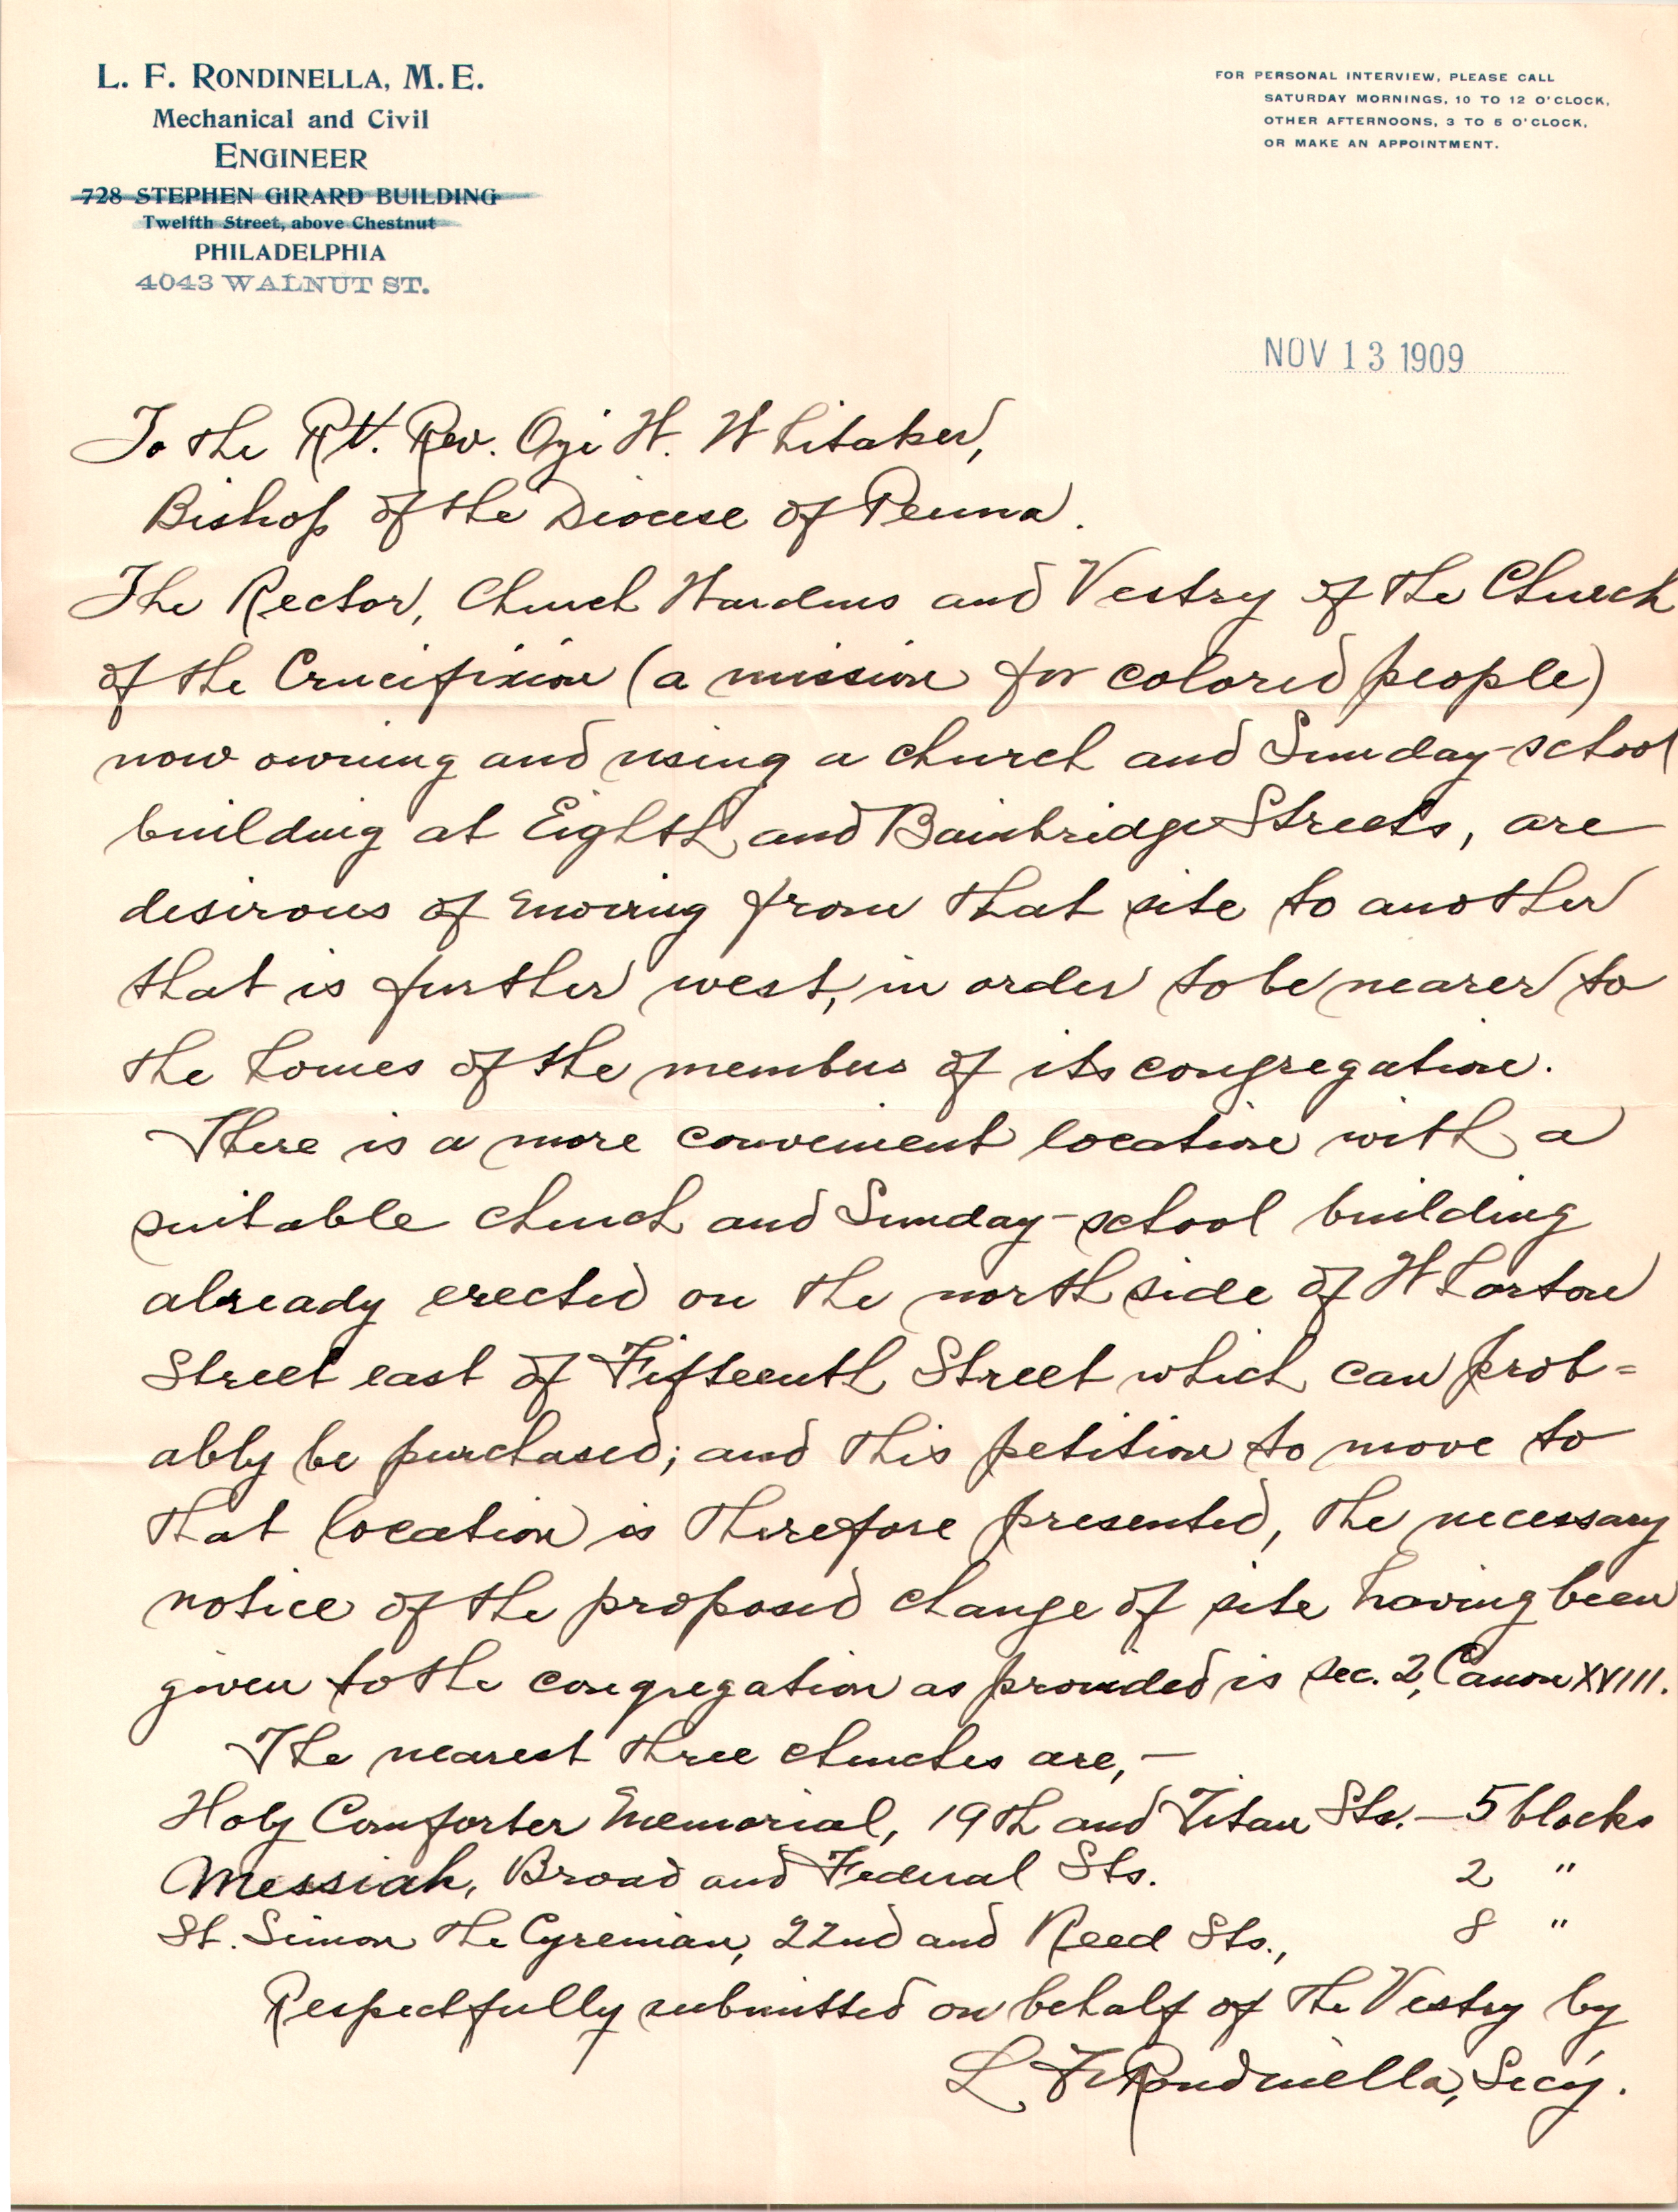 L. F. RONDINELLA, M.E.
Mechanical and Civil
ENGINEER
728 STEPHEN GIRARD BUILDING
Twelfth Street, above Chestnut
PHILADELPHIA
4043 WALNUT ST.
FOR PERSONAL INTERVIEW, PLEASE CALL
SATURDAY MORNINGS, 10 TO 12 O'CLOCK,
OTHER AFTERNOONS, 3 TO 5 O'CLOCK,
OR MAKE AN APPOINTMENT.
NOV 13 1909
To the Rt. Rev. Ozi W. Whitaker,
Bishop of the Diocese of Penna.
The Rector, Church Wardens and Vestry of the Church
of the Crucifixion (a mission for colored people)
now owning and using a church and Sunday-school
building at Eighth and Bainbridge Streets, are
desirous of moving from that site to another
that is further west, in order to be nearer to
the homes of the members of its congregation.
There is a more convenient location with a
suitable church and Sunday-school building
already erected on the north side of Wharton
Street east of Fifteenth Street which can prob=
ably be purchased; and this petition to move to
that location is therefore presented, the necessary
notice of the proposed change of site having been
given to the congregation as provided is sec. 2, Canon XVIII.
The nearest three churches are,—
Holy Comforter Memorial, 19th and Titan Sts. — 5 blocks
Messiah, Broad and Federal Sts. 2 "
St. Simon the Cyrenian, 22nd and Reed Sts., 8 "
Respectfully submitted on behalf of the Vestry by
L. F. Rondinella, Secy.